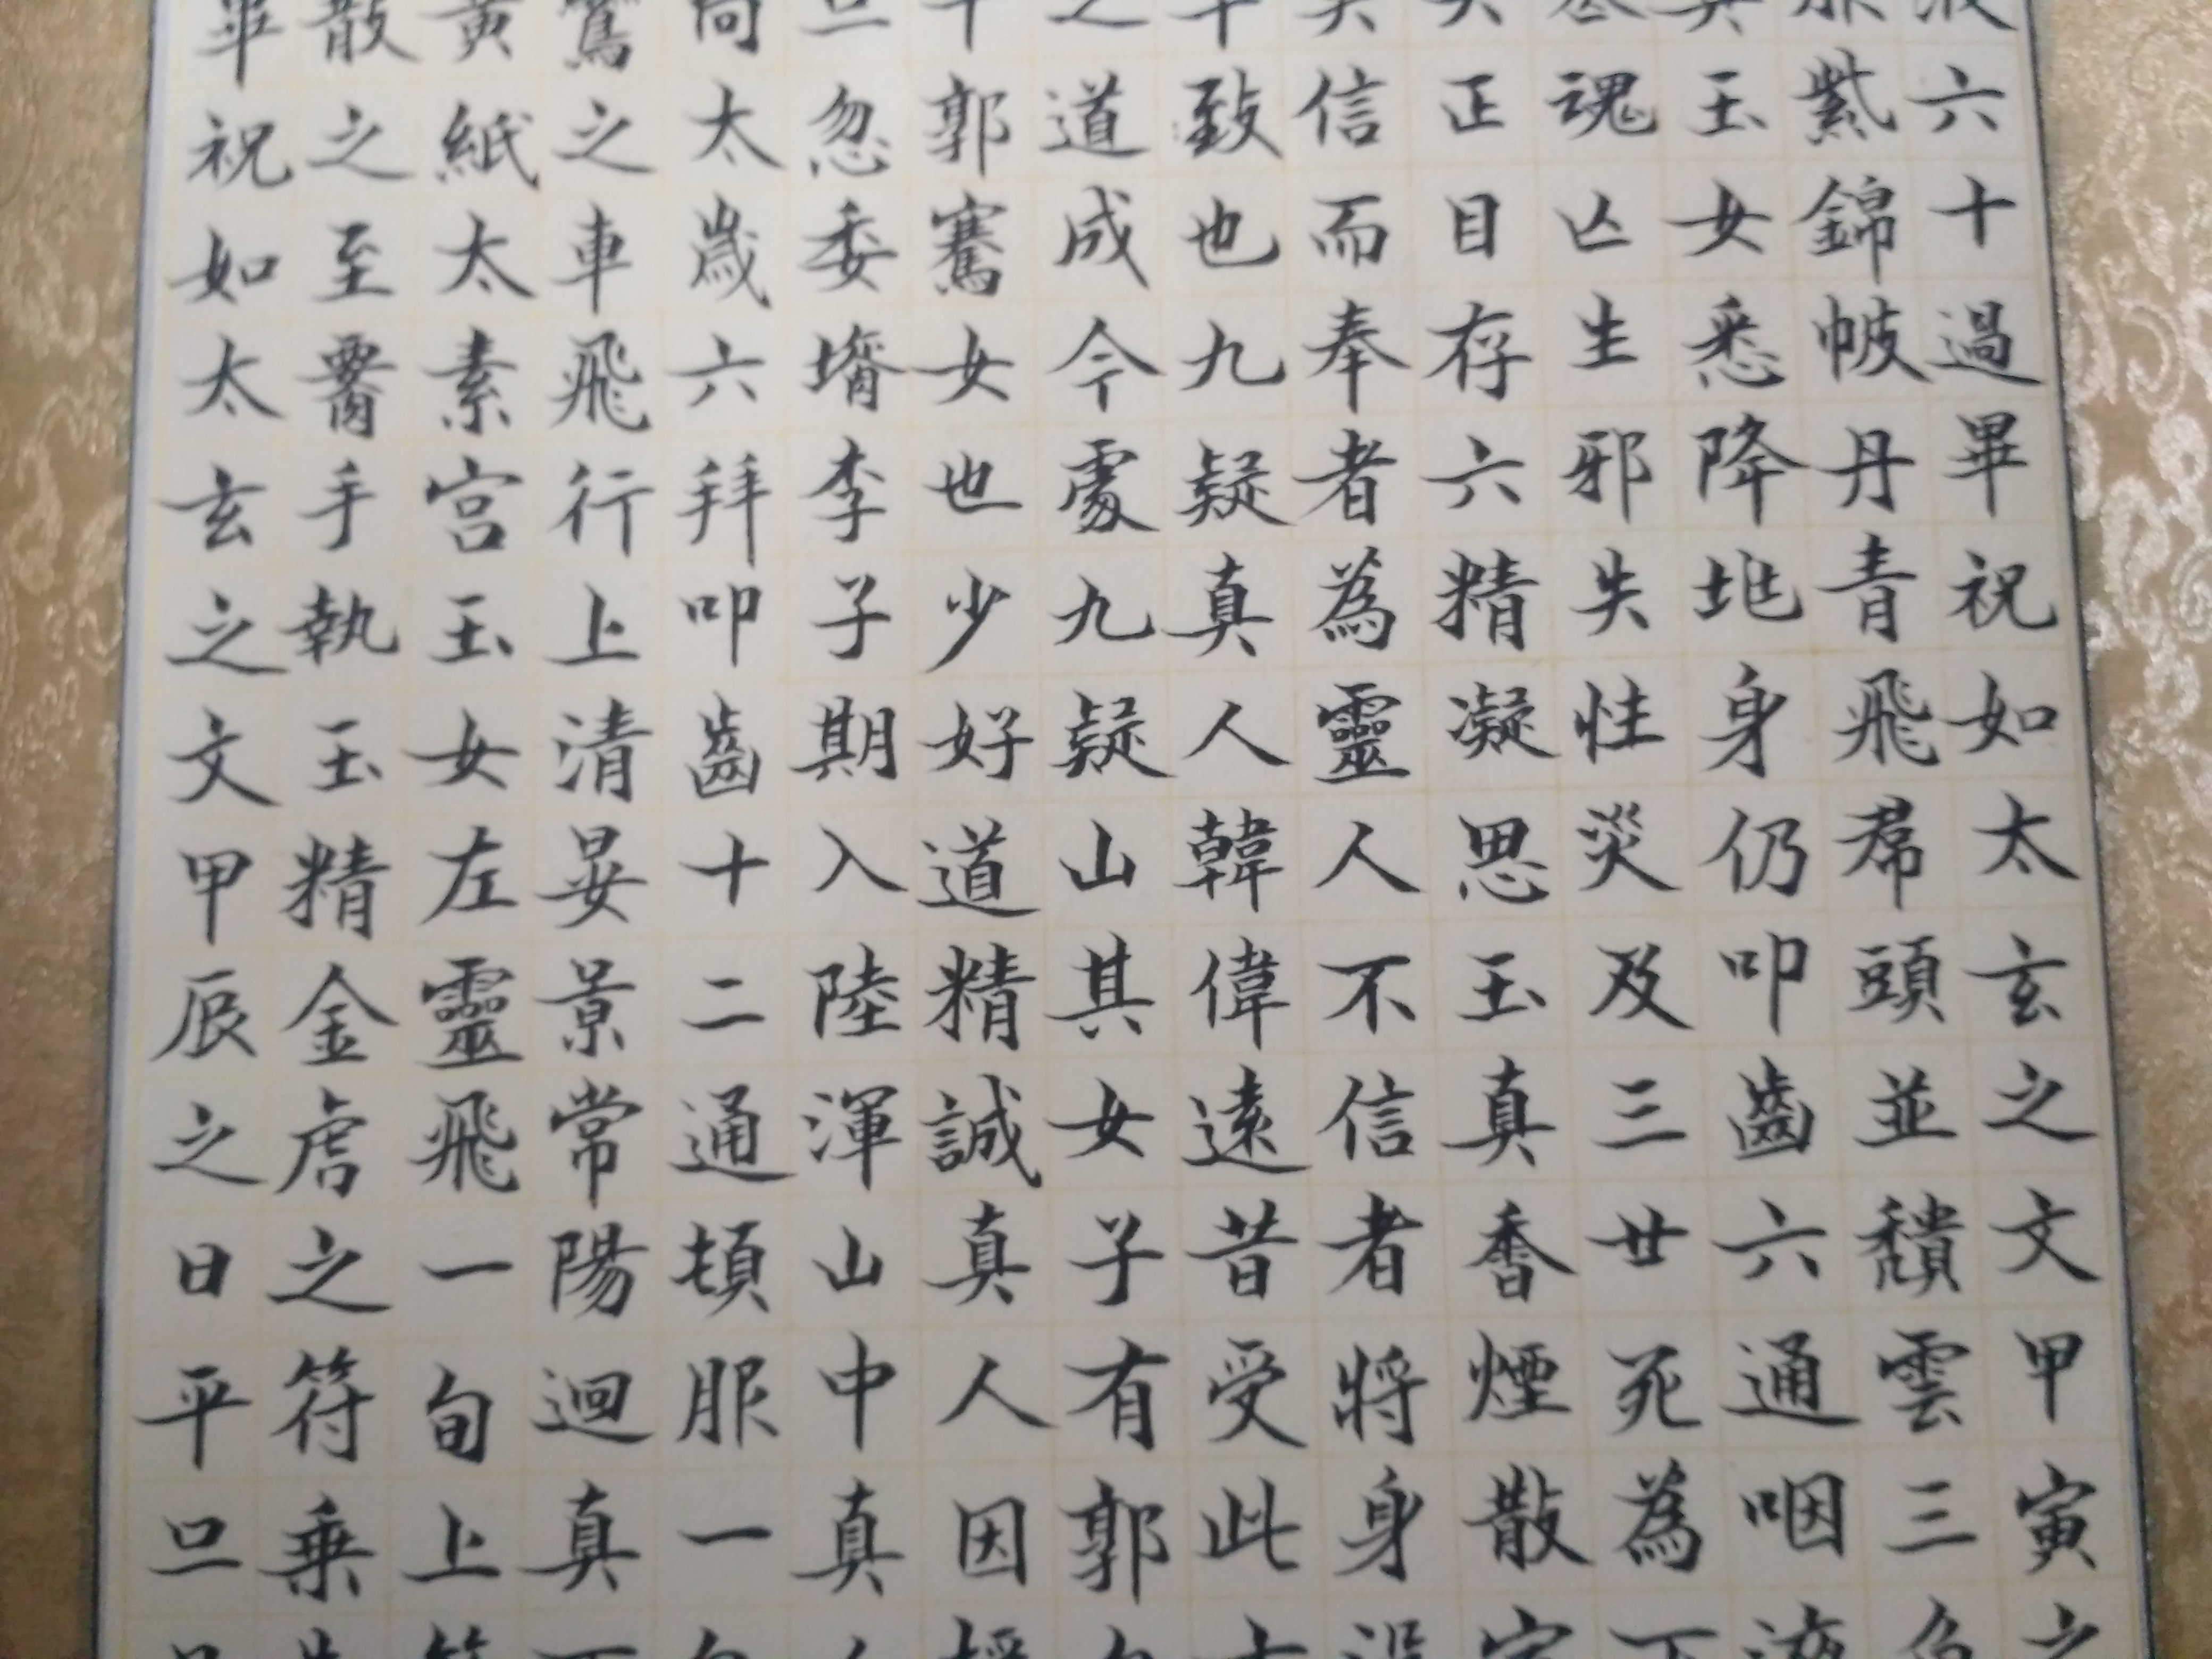 六十過畢祝如太玄之文甲寅之
紫錦帔丹青飛帬頭並頹雲三
玉女悉降地身仍叩齒六通咽液
魂亾生邪失性災及三世死為下
正目存六精凝思玉真香煙散室
信而奉者為靈人不信者將身
致也九疑真人韓偉遠昔受此
之道成今處九疑山其女子有郭
郭騫女也少好道精誠真人因授
旦忽委壻李子期入陸渾山中真
向太歲六拜叩齒十二通頓服一
鸞之車飛行上清晏景常陽迴真
黃紙太素宮玉女左靈飛一旬上符
散之至腰手執玉精金虎之符乘
畢祝如太玄之文甲辰之日平旦